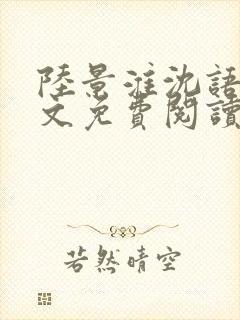 陸景淮沈語
文免費閱讀
若然晴空